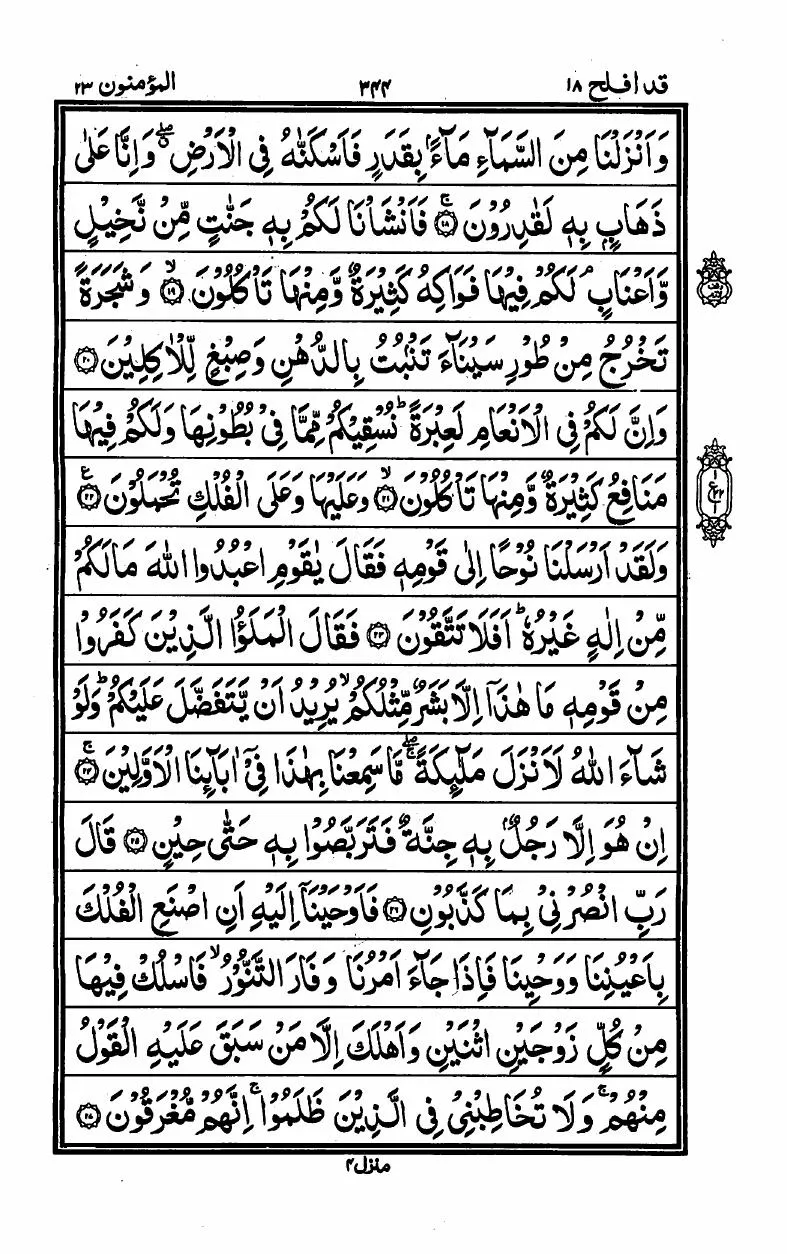 قد افلح ۱۸ ۳۴۴ المؤمنون ۲۳
وَاَنْزَلْنَا مِنَ السَّمَآءِ مَآءًۢ بِقَدَرٍ فَاَسْكَنّٰهُ فِی الْاَرْضِ ۖۗ وَاِنَّا عَلٰی
ذَهَابٍۭ بِهٖ لَقٰدِرُوْنَ ۚ﴿۱۸﴾ فَاَنْشَاْنَا لَكُمْ بِهٖ جَنّٰتٍ مِّنْ نَّخِیْلٍ
وَّاَعْنَابٍ ۘ لَكُمْ فِیْهَا فَوَاكِهُ كَثِیْرَةٌ وَّمِنْهَا تَاْكُلُوْنَ ۙ﴿۱۹﴾ وَشَجَرَةً
تَخْرُجُ مِنْ طُوْرِ سَیْنَآءَ تَنْۢبُتُ بِالدُّهْنِ وَصِبْغٍ لِّلْاٰكِلِیْنَ ﴿۲۰﴾
وَاِنَّ لَكُمْ فِی الْاَنْعَامِ لَعِبْرَةً ؕ نُسْقِیْكُمْ مِّمَّا فِیْ بُطُوْنِهَا وَلَكُمْ فِیْهَا
مَنَافِعُ كَثِیْرَةٌ وَّمِنْهَا تَاْكُلُوْنَ ۙ﴿۲۱﴾ وَعَلَیْهَا وَعَلَی الْفُلْكِ تُحْمَلُوْنَ ﴿۲۲﴾ ع
وَلَقَدْ اَرْسَلْنَا نُوْحًا اِلٰی قَوْمِهٖ فَقَالَ یٰقَوْمِ اعْبُدُوا اللّٰهَ مَا لَكُمْ
مِّنْ اِلٰهٍ غَیْرُهٗ ؕ اَفَلَا تَتَّقُوْنَ ﴿۲۳﴾ فَقَالَ الْمَلَؤُا الَّذِیْنَ كَفَرُوْا
مِنْ قَوْمِهٖ مَا هٰذَاۤ اِلَّا بَشَرٌ مِّثْلُكُمْ ۙ یُرِیْدُ اَنْ یَّتَفَضَّلَ عَلَیْكُمْ ؕ وَلَوْ
شَآءَ اللّٰهُ لَاَنْزَلَ مَلٰٓئِكَةً ۖۚ مَّا سَمِعْنَا بِهٰذَا فِیْۤ اٰبَآئِنَا الْاَوَّلِیْنَ ۚ﴿۲۴﴾
اِنْ هُوَ اِلَّا رَجُلٌۢ بِهٖ جِنَّةٌ فَتَرَبَّصُوْا بِهٖ حَتّٰی حِیْنٍ ﴿۲۵﴾ قَالَ
رَبِّ انْصُرْنِیْ بِمَا كَذَّبُوْنِ ﴿۲۶﴾ فَاَوْحَیْنَاۤ اِلَیْهِ اَنِ اصْنَعِ الْفُلْكَ
بِاَعْیُنِنَا وَوَحْیِنَا فَاِذَا جَآءَ اَمْرُنَا وَفَارَ التَّنُّوْرُ ۙ فَاسْلُكْ فِیْهَا
مِنْ كُلٍّ زَوْجَیْنِ اثْنَیْنِ وَاَهْلَكَ اِلَّا مَنْ سَبَقَ عَلَیْهِ الْقَوْلُ
مِنْهُمْ ۚ وَلَا تُخَاطِبْنِیْ فِی الَّذِیْنَ ظَلَمُوْا ۚ اِنَّهُمْ مُّغْرَقُوْنَ ﴿۲۷﴾
منزل۴